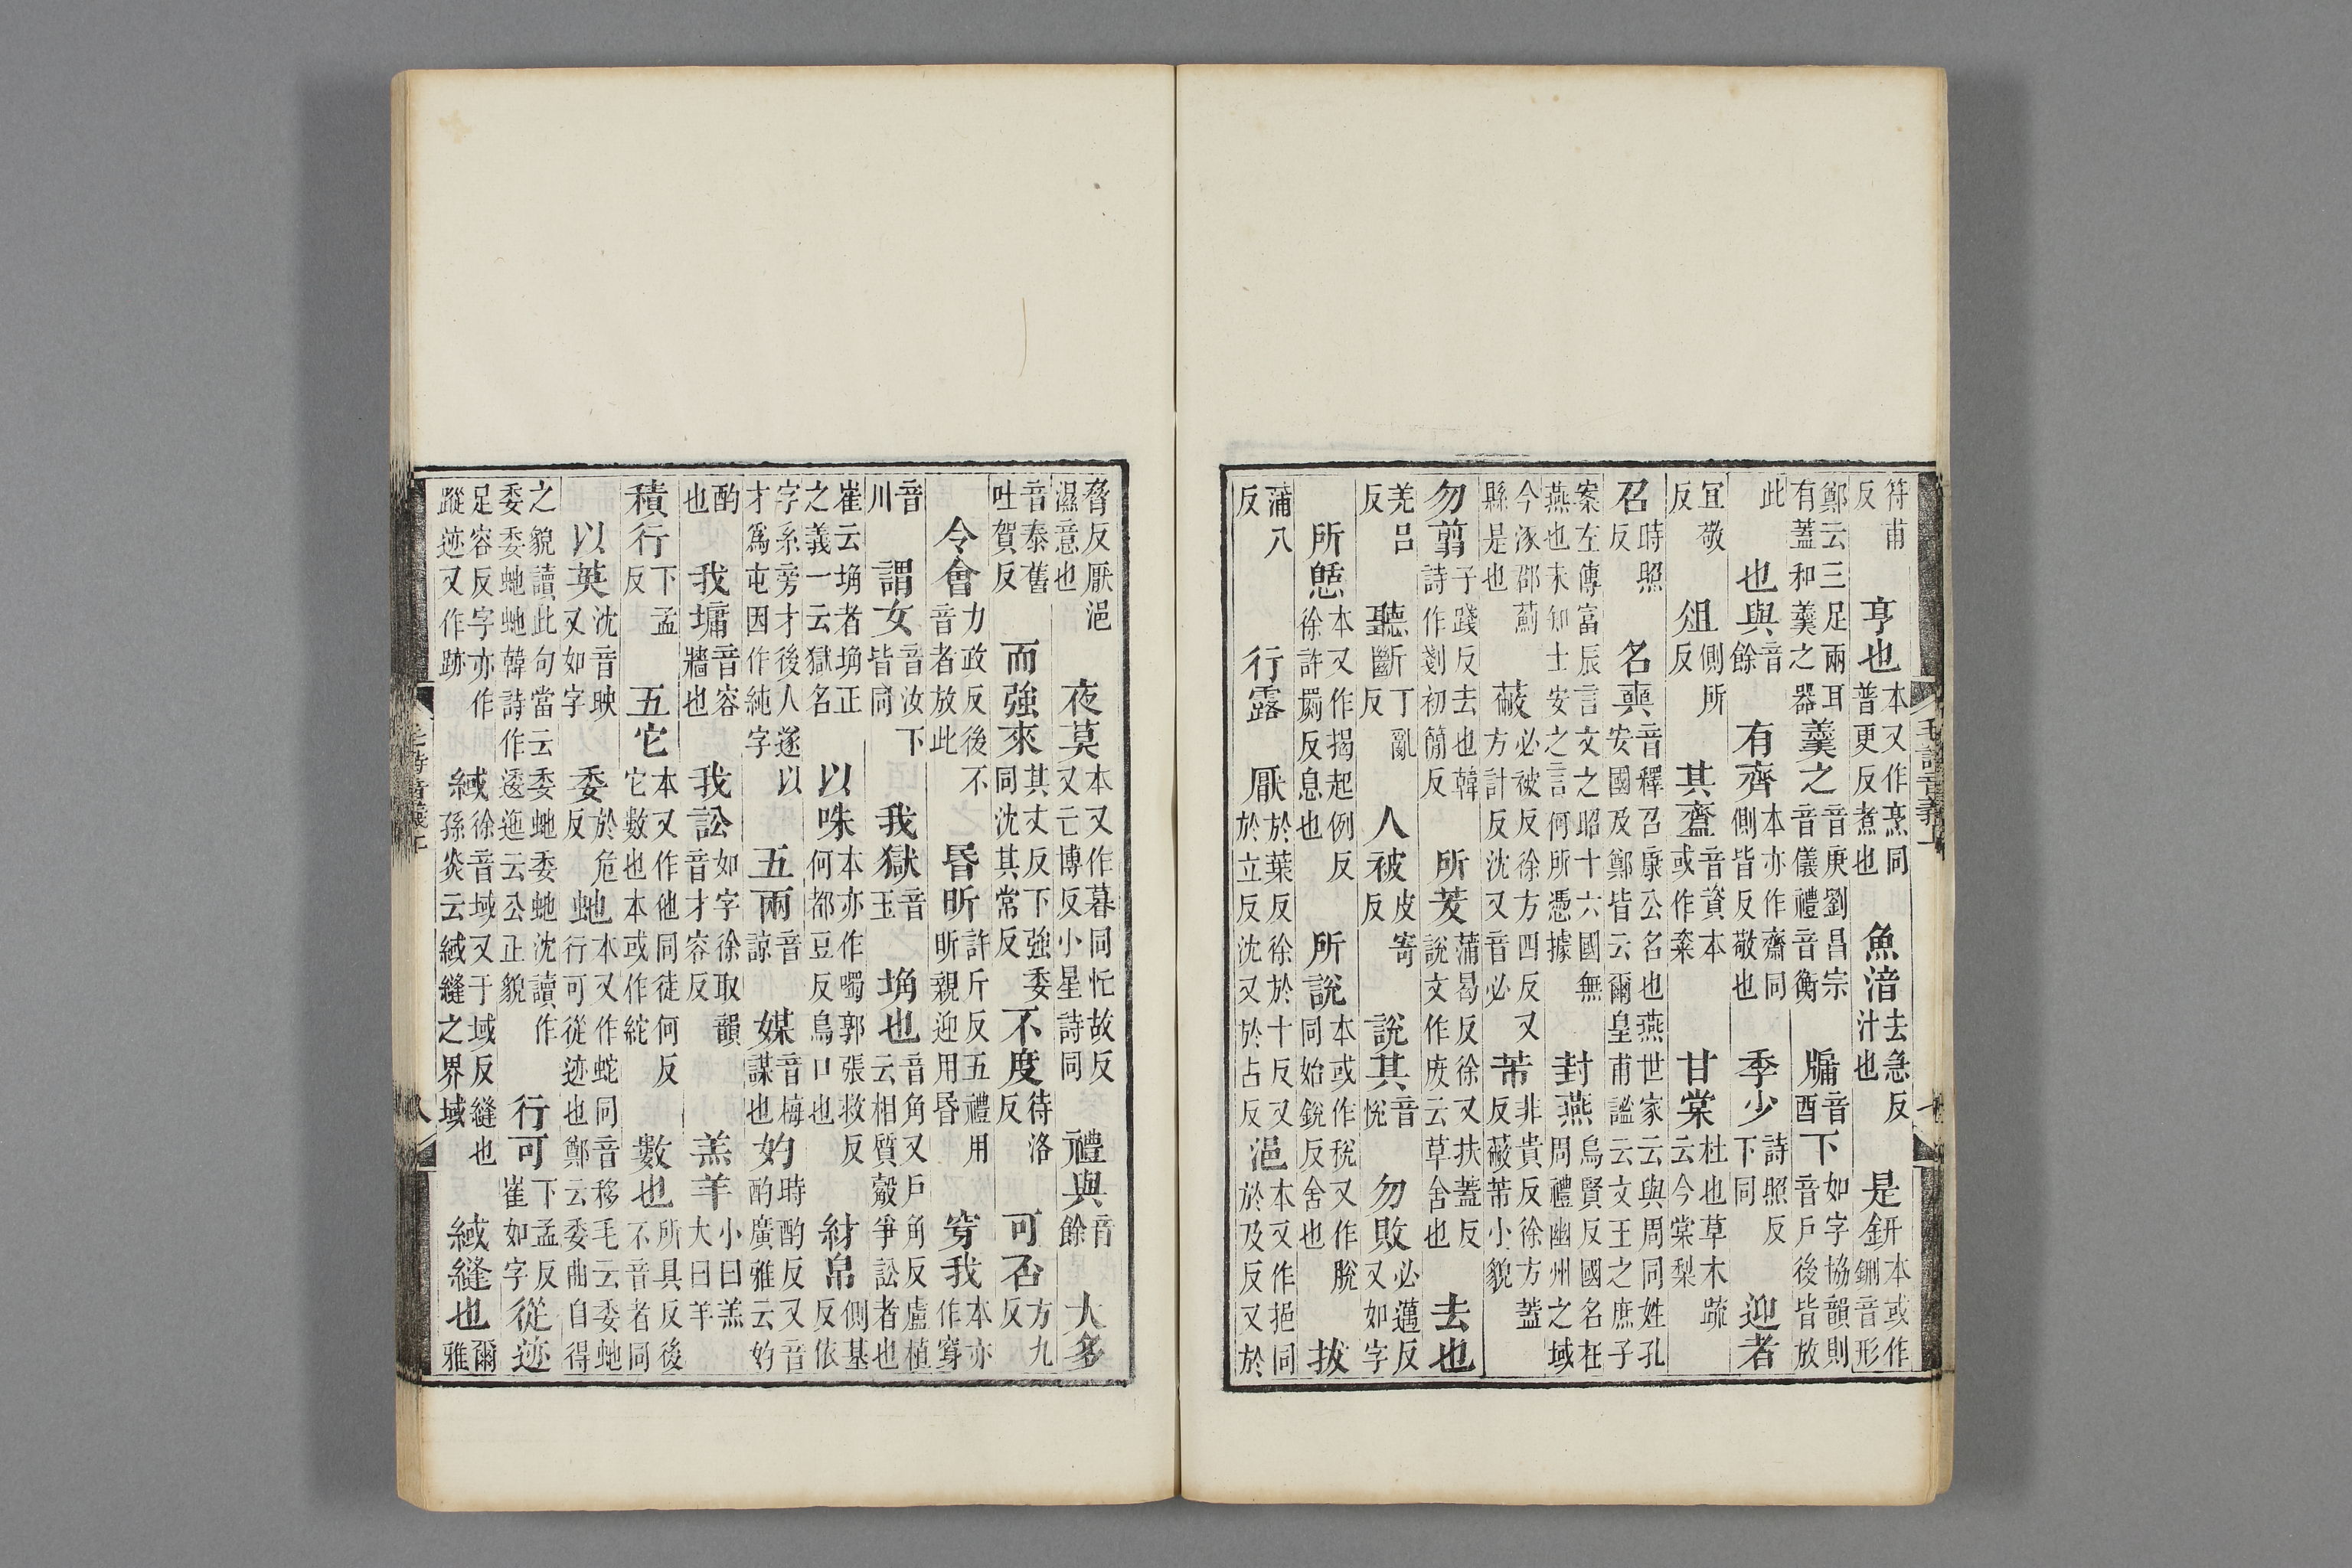 符甫反亨也本又作烹同普更反煮也魚湆去急反汁也是鈃本或作鉶音形
鄭云三足兩耳有蓋和羹之器羹之音庚劉昌宗音儀禮音衡牖音酉下如字協韻則音戶後皆放
此也與音餘有齊本亦作齋同側皆反敬也季少詩照反下同迎者
宜敬反俎側所反其齍音資本或作粢甘棠杜也草木疏云今棠梨
召時照反名奭音釋召康公名也燕世家云與周同姓孔安國及鄭皆云爾皇甫謐云文王之庶子
案左傳富辰言文之昭十六國無燕也未知士安之言何所憑據封燕烏賢反國名在周禮幽州之域
今涿邵薊縣是也蔽必被反徐方四反又方計反沈又音必芾非貴反徐方蓋反蔽芾小貌
勿翦子踐反去也韓詩作剗初簡反所茇蒲曷反徐又扶蓋反說文作废云草舍也去也
羌呂反聽斷丁亂反人被皮寄反說其音悅勿敗必邁反又如字
所憩本又作揭起例反徐許罽反息也所說本或作稅又作脫同始銳反舍也拔
蒲八反行露厭於葉反徐於十反又於立反沈又於占反浥本又作挹同於及反又於
毛詩音義上 七
脅反厭浥濕意也夜莫本又作暮同忙故反又亡博反小星詩同禮與音餘大多
音泰舊吐賀反而強來其丈反下強委同沈其常反不度待洛反可否方九反
令會力政反後不音者放此昏昕許斤反五禮用昕親迎用昏穿我本亦作穿
音川謂女音汝下皆同我獄音玉埆也音角又戶角反盧植云相質觳爭訟者也
崔云埆者埆正之義一云獄名以咮本亦作噣郭張救反何都豆反鳥口也紂帛側基反依
字糸旁才後人遂以才爲屯因作純字五兩音諒媒音梅謀也妁時酌反又音酌廣雅云妁
酌也我墉音容牆也我訟如字徐取韻音才容反羔羊小曰羔大曰羊
積行下孟反五它本又作他同徒何反它數也本或作紽數也所具反後不音者同
以英沈音映又如字委於危反虵本又作蛇同音移毛云委虵行可從迹也鄭云委曲自得
之貌讀此句當云委虵委虵沈讀作委委虵虵韓詩作逶迤云公正貌行可下孟反崔如字從迹
足容反字亦作蹤迹又作跡緎徐音域又于域反縫也孫炎云緎縫之界域緎縫也爾雅
毛詩音義上 八